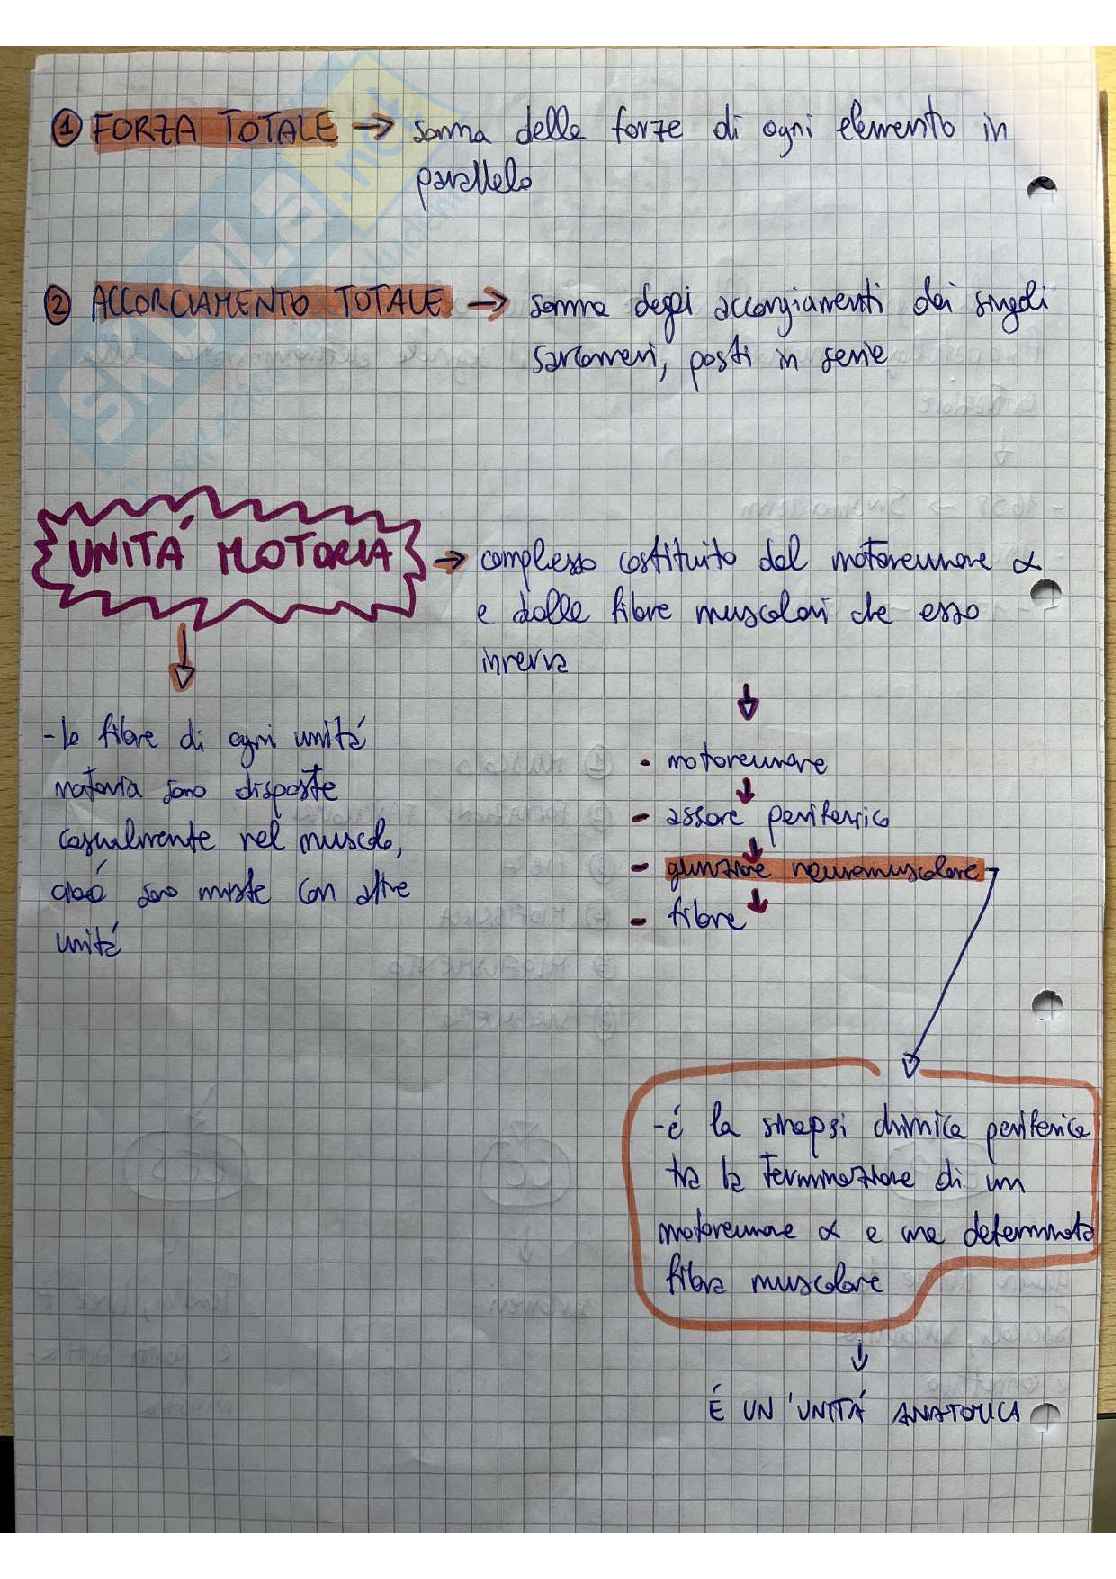 ① FORZA TOTALE → somma delle forze di ogni elemento in
parallelo
② ACCORCIAMENTO TOTALE → somma degli accorciamenti dei singoli
sarcomeri, posti in serie
UNITÁ MOTORIA → complesso costituito dal motoneurone α
e dalle fibre muscolari che esso
innerva
- le fibre di ogni unitá
motoria sono disposte
casualmente nel muscolo,
cioé sono miste con altre
unitá
- motoneurone
- assone periferico
- giunzione neuromuscolare
- fibre
- é la sinapsi chimica periferica
tra la terminazione di un
motoneurone α e una determinata
fibra muscolare
É UN'UNITÁ ANATOMICA
SKUOLA.net